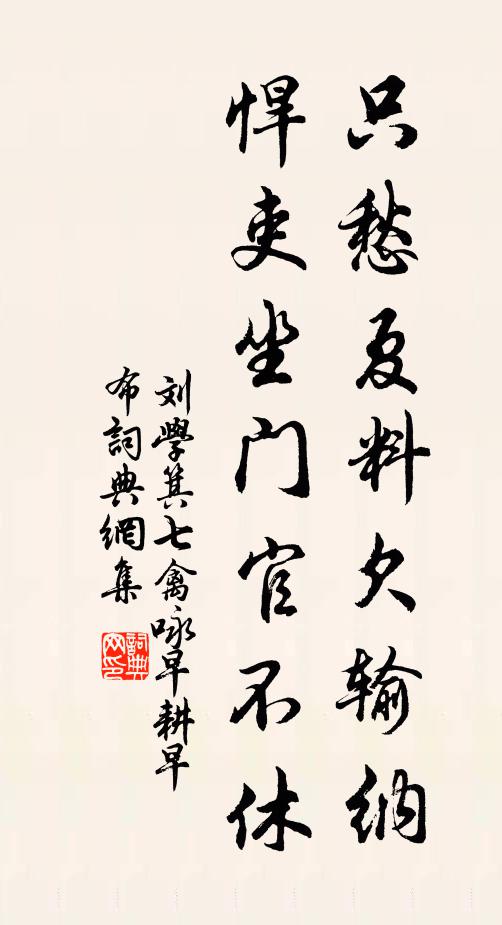 只愁夏料欠输纳
悍吏坐门官不休
刘學箕七禽咏早耕早
布詞典網集
詞典网印